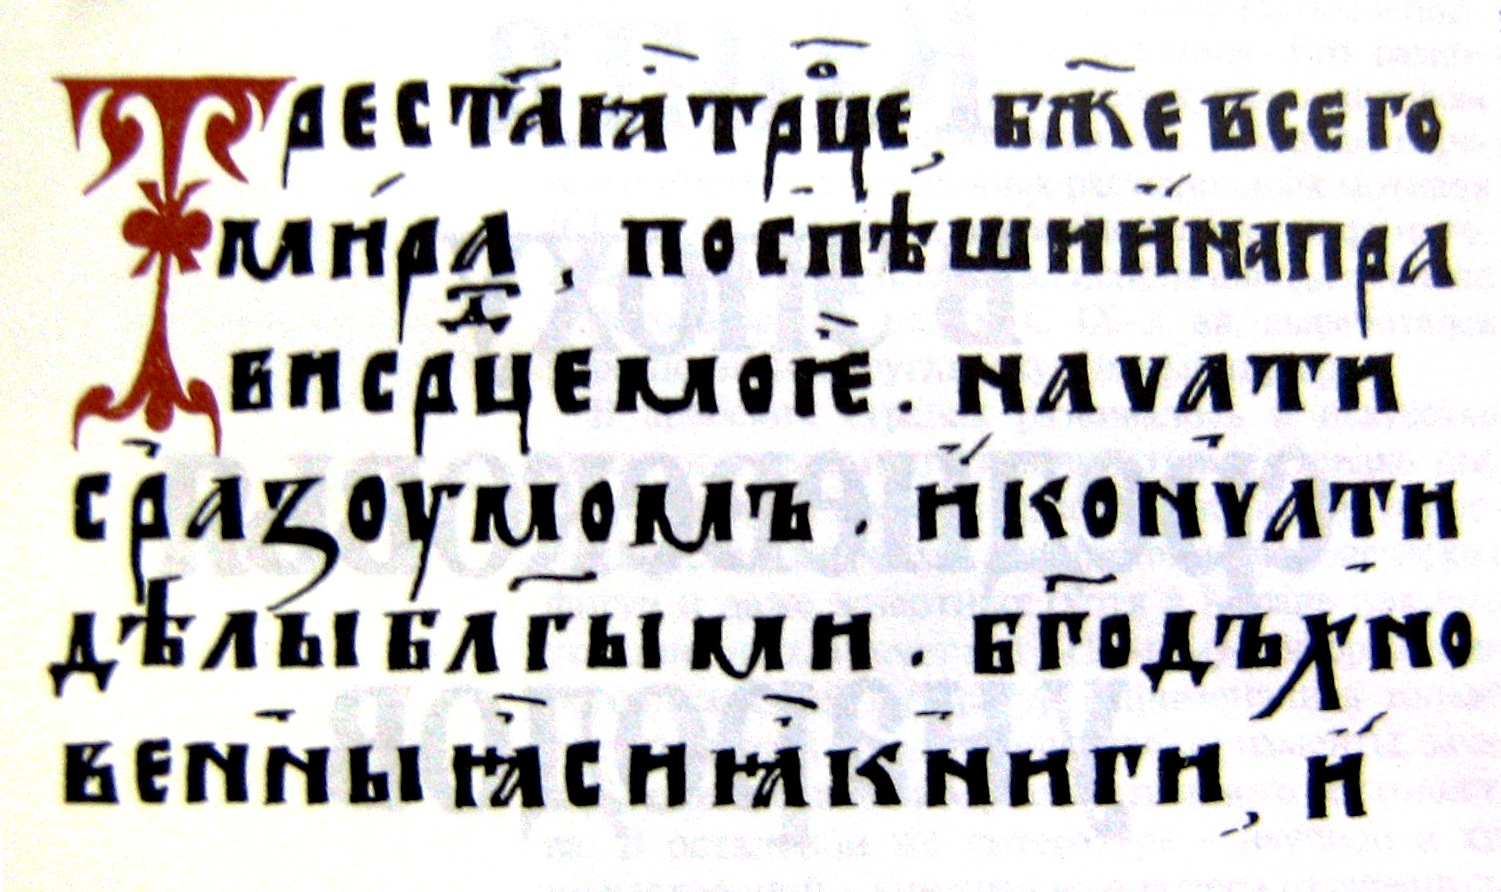 Трест҃аꙗ҆ трⷪ҇це, бж҃е всего
ми́ра, поспѣши и҆ на пра
ви срⷣце мое҆. начати
с̾разоумомъ. и҆́ кон̾чати
дѣлы бл҃гыми. бг҃одъх̾но
вен̾ныꙗ҆ сиꙗ҆ к̾ниги, и҆́